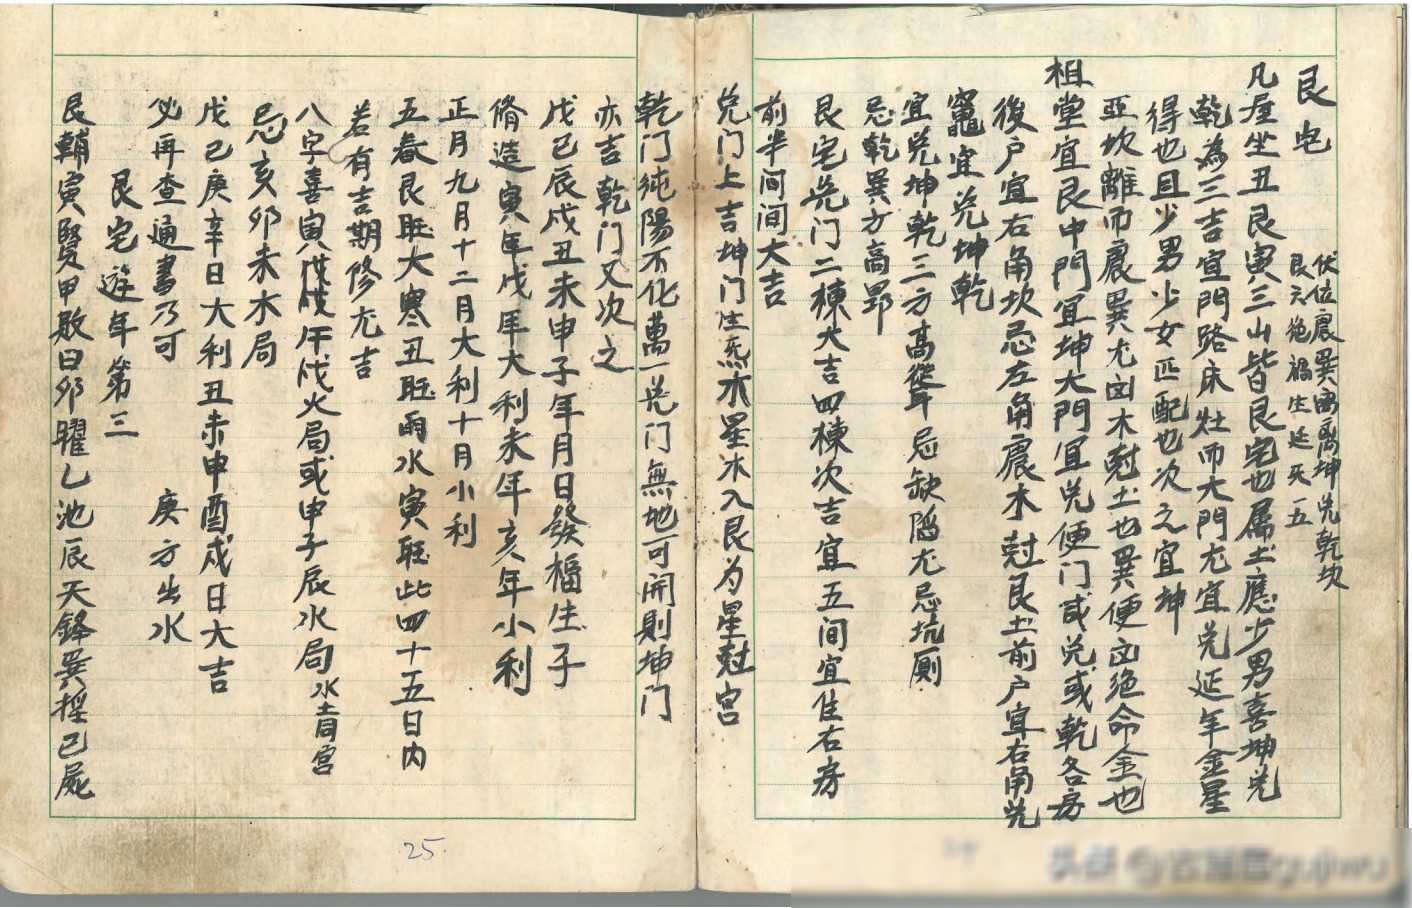 艮宅
伏位震巽离离坤兑乾坎
艮六絶禍生延天五
凡座坐丑艮寅三山皆艮宅也属土應少男喜坤兑
乾為三吉宜門路床灶而大門尤宜兑延年金星
得也且少男少女匹配也次之宜坤
亞坎離而震巽尤凶木尅土也巽便凶绝命金也
相堂宜艮中門宜坤大門宜兑便门或兑或乾各房
後户宜右角坎忌左角震木尅艮土前户宜右角兑
竈宜兑坤乾
宜兑坤乾三方高聳忌缺陷尤忌坑厕
忌乾巽方高昂
艮宅兑门二棟大吉四棟次吉宜五间宜住右房
前半间间大吉
兑门上吉坤门生炁水星水入艮为星尅宫
乾门純陽不化萬一兑门無地可開則坤门
亦吉乾门又次之
戊己辰戌丑未申子年月日發福生子
脩造寅年戌年大利未年亥年小利
正月九月十二月大利十月小利
五春艮旺大寒丑旺雨水寅旺此四十五日内
若有吉期修尤吉
八字喜寅戌午戌火局或申子辰水局水青宫
忌亥卯未木局
戊己庚辛日大利丑未申酉戌日大吉
必再查通書乃可 庚方出水
艮宅遊年第三
艮輔寅賢甲敗曰卯曜乙池辰天鋒巽揺己屍
25